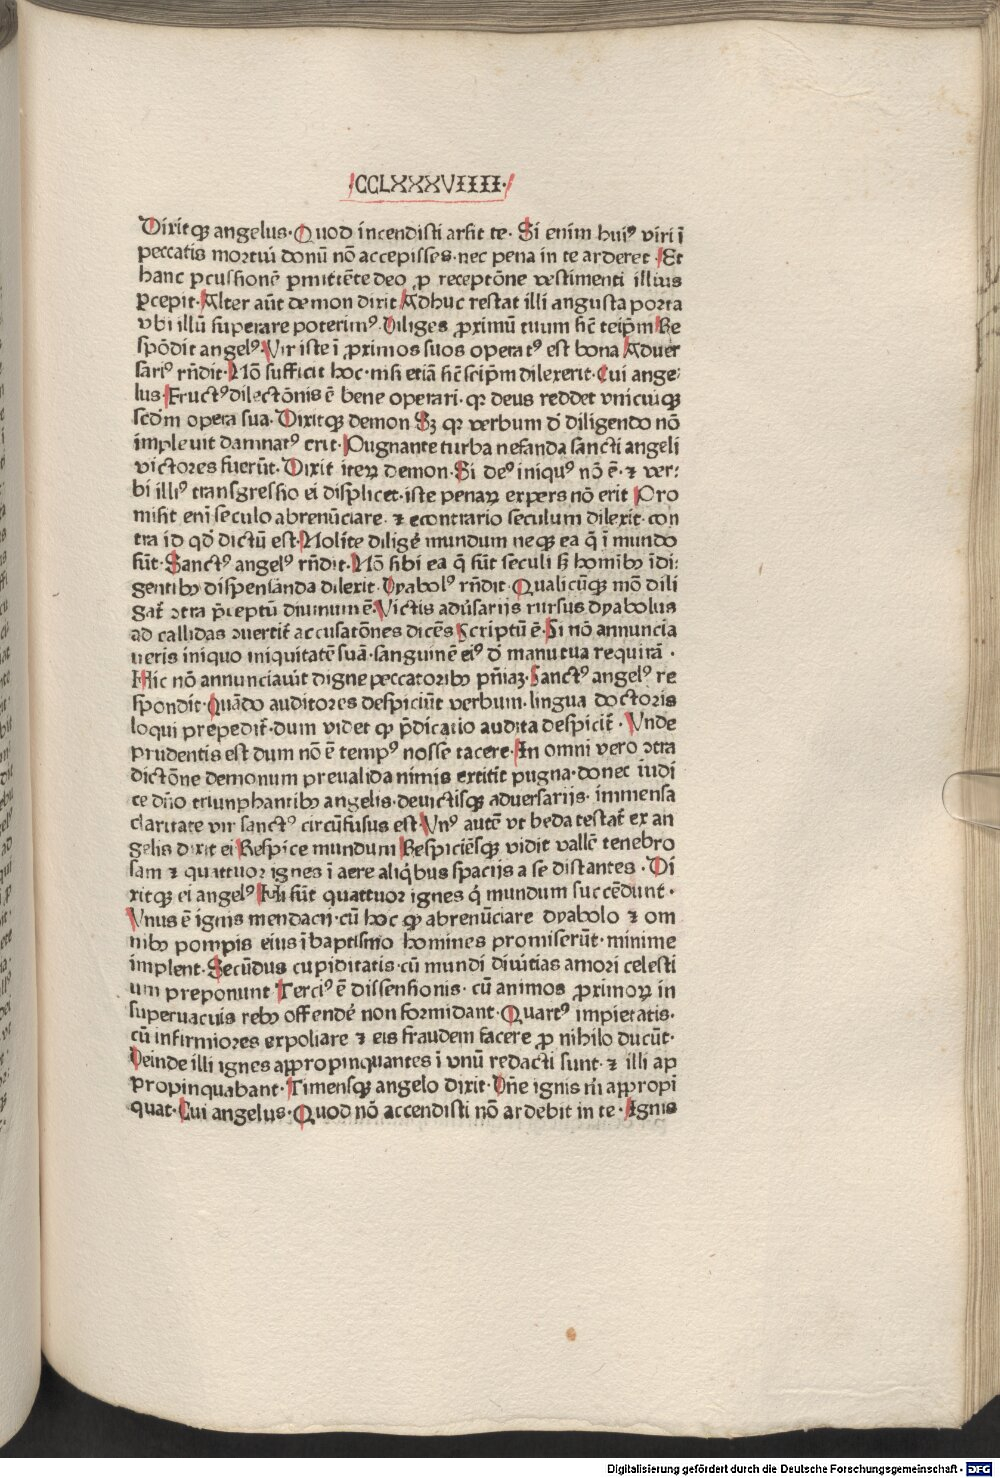 ·CCLXXXVIIII·
Dixitqꝫ angelus· Quod incendisti arsit te· Si enim huiꝰ viri ī
peccatis mortui donū nō accepisses· nec pena in te arderet· Et
hanc ꝑcussionē ꝑmittēte deo ꝓ receptōne vestimenti illius
ꝑcepit· Alter aūt demon dixit Adhuc restat illi angusta porta
vbi illū superare poterimꝰ· Diliges ꝓximū tuum sic̄ teip̄m Re
spōdit angelꝰ· Vir iste ī ꝓximos suos operatꝰ est bona Aduer
sariꝰ rn̄dit· Nō sufficit hoc· nisi etiā sic̄ seip̄m dilexerit· Cui ange⸗
lus· Fructꝰ dilectōnis ē bene operari· qꝛ deus reddet vnicuiqꝫ
scd̄m opera sua· Dixitqꝫ demon Sꝫ qꝛ verbum d̄ diligendo nō
impleuit damnatꝰ erit· Pugnante turba nefanda sancti angeli
victores fuerūt· Dixit iteꝝ demon· Si deꝰ iniquꝰ nō ē· ⁊ ver⸗
bi illiꝰ transgressio ei displicet· iste penaꝝ expers nō erit Pro
misit eni seculo abrenūciare· ⁊ econtrario seculum dilexit· con
tra id qd̄ dictū est· Nolite diligē mundum neqꝫ ea q̄ ī mundo
sūt· Sanctꝰ angelꝰ rn̄dit· Nō sibi ea q̄ sūt seculi sꝫ homībꝫ īdi⸗
gentibꝫ dispensanda dilexit· Dyabolꝰ rn̄dit· Qualicūqꝫ mō dili
gat̄ ↄtra p̄ceptū diuinum ē· Victis adūsarijs rursus dyabolus
ad callidas ↄuertit̄ accusatōnes dicēs Scriptū ē· Si nō annuncia
ueris iniquo iniquitatē suā· sanguinē eiꝰ d̄ manu tua requirā·
Hic nō annunciauit digne peccatoribꝫ pn̄iaꝫ· Sanctꝰ angelꝰ re
spondit· Quādo auditores despiciūt verbum· lingua doctoris
loqui prepedit̄· dum videt qꝫ p̄dicatio audita despicit̄· Vnde
prudentis est dum nō ē tempꝰ nosse tacere· In omni vero ↄtra
dictōne demonum preualida nimis extitit pugna· donec iudi
ce dn̄o triunphantibꝫ angelis· deuictisqꝫ aduersarijs· immensa
claritate vir sanctꝰ circūfusus est· Vnꝰ autē vt beda testat̄ ex an
gelis dixit ei Respice mundum Respiciēsqꝫ vidit vallē tenebro
sam ⁊ quattuor ignes ī aere aliq̇bus spacijs a se distantes· Di
xitqꝫ ei angelꝰ Hi sūt quattuor ignes q̇ mundum succēdunt·
Vnus ē ignis mendacij· cū hoc qꝫ abrenūciare dyabolo ⁊ om
nibꝫ pompis eius ī baptismo homines promiserūt· minime
implent· Secūdus cupiditatis· cū mundi diuitias amori celesti
um preponunt Terciꝰ ē dissensionis· cū animos ꝓximoꝝ in
superuacuis rebꝫ offendē non formidant· Quartꝰ impietatis·
cū infirmiores expoliare ⁊ eis fraudem facere ꝓ nihilo ducūt·
Deinde illi ignes appropinquantes ī vnū redacti sunt· ⁊ illi ap
propinquabant· Timensqꝫ angelo dixit· Dn̄e ignis m̄ appropī
quat· Cui angelus· Quod nō accendisti nō ardebit in te· Ignis
Digitalisierung gefördert durch die Deutsche Forschungsgemeinschaft - DFG